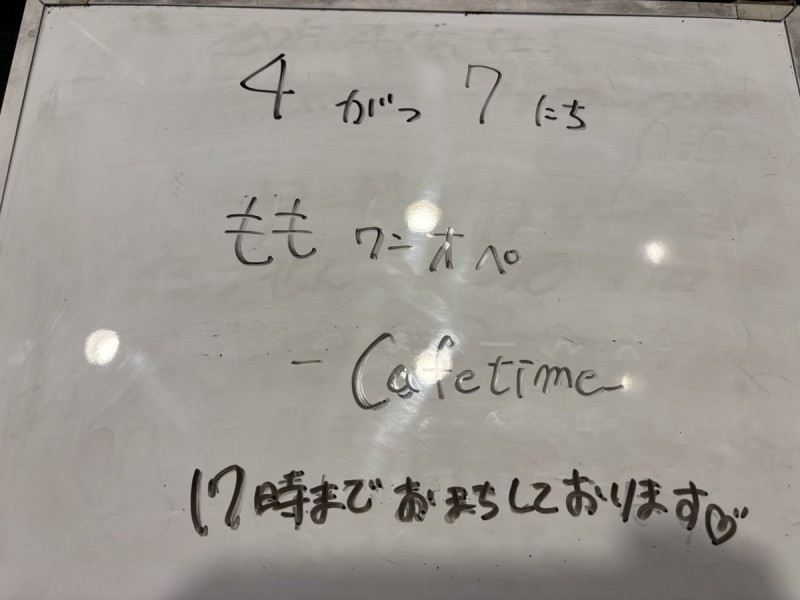 4がつ7にち
もも ワンオペ
- Cafetime
17時までおまちしております♡